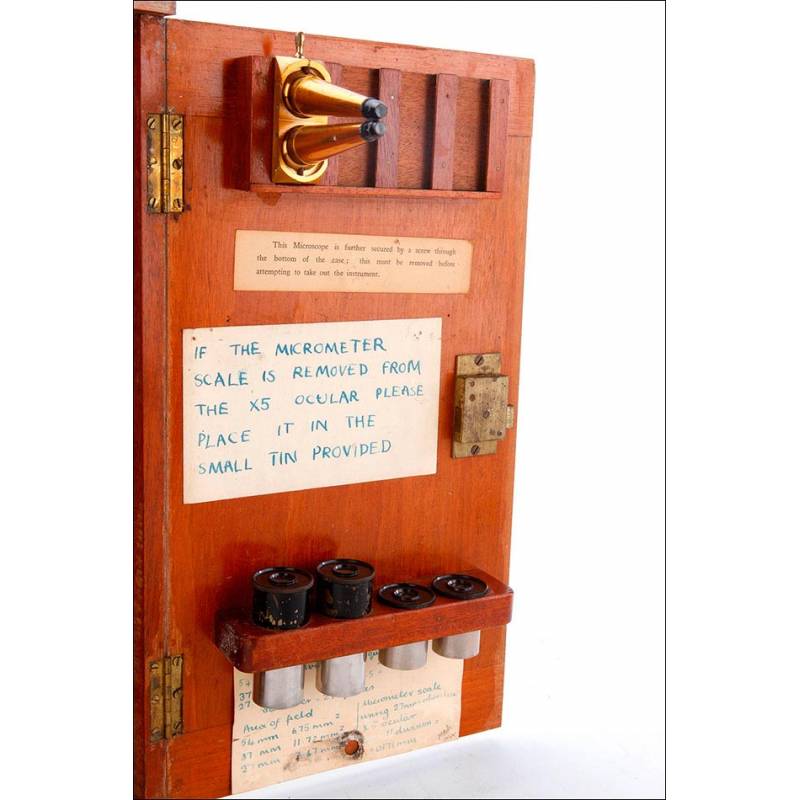 This Microscope is further secured by a screw through
the bottom of the case; this must be removed before
attempting to take out the instrument.
IF THE MICROMETER
SCALE IS REMOVED FROM
THE X5 OCULAR PLEASE
PLACE IT IN THE
SMALL TIN PROVIDED
54
37
27
Area of field =
54 mm 675 mm 2
37 mm 11.72 mm
27 mm
Micrometer scale
using 27mm
x 5 ocular